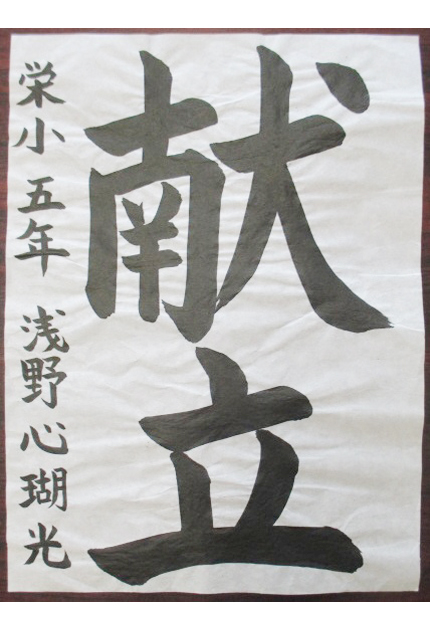 献立
栄小 五年 浅野心瑚光